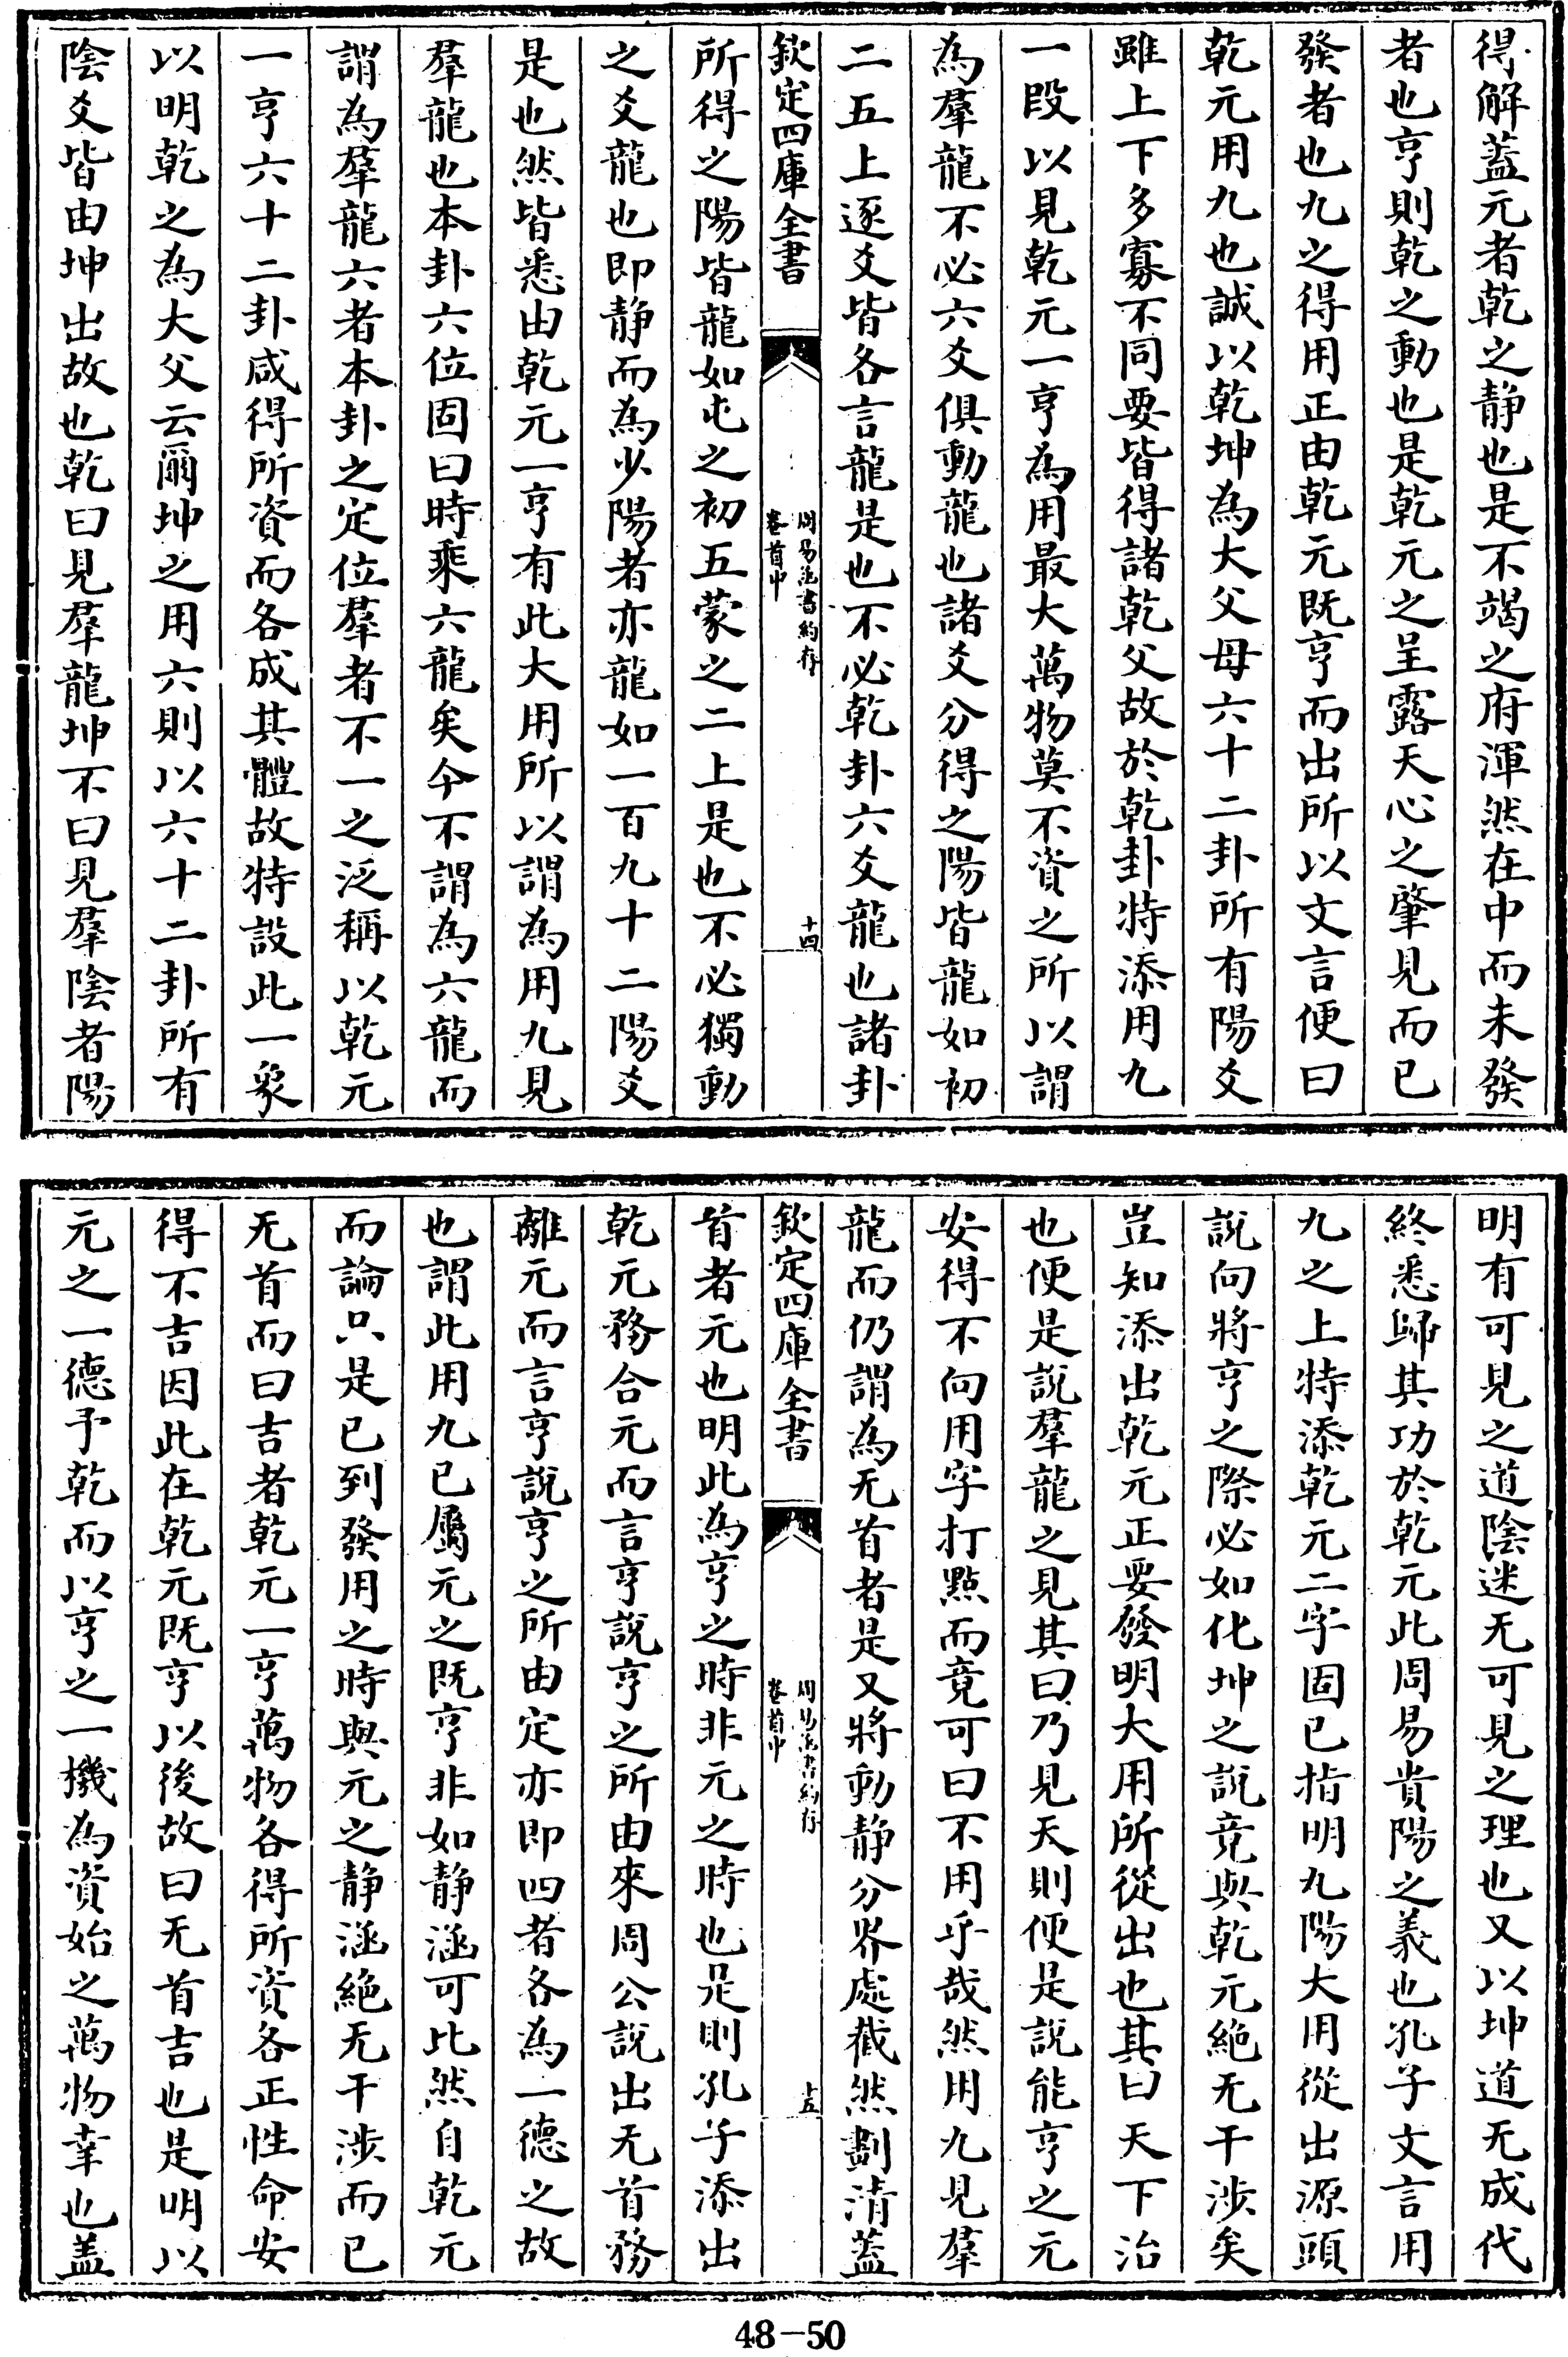 得解蓋元者乾之静也是不竭之府渾然在中而未發
者也亨則乾之動也是乾元之呈露天心之肇見而已
發者也九之得用正由乾元既亨而出所以文言便曰
乾元用九也誠以乾坤為大父母六十二卦所有陽爻
雖上下多寡不同要皆得諸乾父故於乾卦特添用九
一段以見乾元一亨為用最大萬物莫不資之所以謂
為羣龍不必六爻俱動龍也諸爻分得之陽皆龍如初
二五上逐爻皆各言龍是也不必乾卦六爻龍也諸卦
欽定四庫全書
周易函書約存
卷首中
十四
所得之陽皆龍如屯之初五蒙之二上是也不必獨動
之爻龍也即静而為少陽者亦龍如一百九十二陽爻
是也然皆悉由乾元一亨有此大用所以謂為用九見
羣龍也本卦六位固曰時乘六龍矣今不謂為六龍而
謂為羣龍六者本卦之定位羣者不一之泛稱以乾元
一亨六十二卦咸得所資而各成其體故特設此一象
以明乾之為大父云爾坤之用六則以六十二卦所有
陰爻皆由坤出故也乾曰見羣龍坤不曰見羣陰者陽
明有可見之道陰迷无可見之理也又以坤道无成代
終悉歸其功於乾元此周易貴陽之義也孔子文言用
九之上特添乾元二字固已指明九陽大用從出源頭
說向將亨之際必如化坤之說竟與乾元絶无干涉矣
豈知添出乾元正要發明大用所從出也其曰天下治
也便是說羣龍之見其曰乃見天則便是說能亨之元
安得不向用字打點而竟可曰不用乎哉然用九見羣
龍而仍謂為无首者是又將動静分界處截然劃清蓋
欽定四庫全書
周易函書約存
卷首中
十五
首者元也明此為亨之時非元之時也是則孔子添出
乾元務合元而言亨說亨之所由來周公說出无首務
離元而言亨說亨之所由定亦即四者各為一德之故
也謂此用九已屬元之既亨非如静涵可比然自乾元
而論只是已到發用之時與元之静涵絶无干涉而已
无首而曰吉者乾元一亨萬物各得所資各正性命安
得不吉因此在乾元既亨以後故曰无首吉也是明以
元之一德予乾而以亨之一機為資始之萬物幸也蓋
48-50